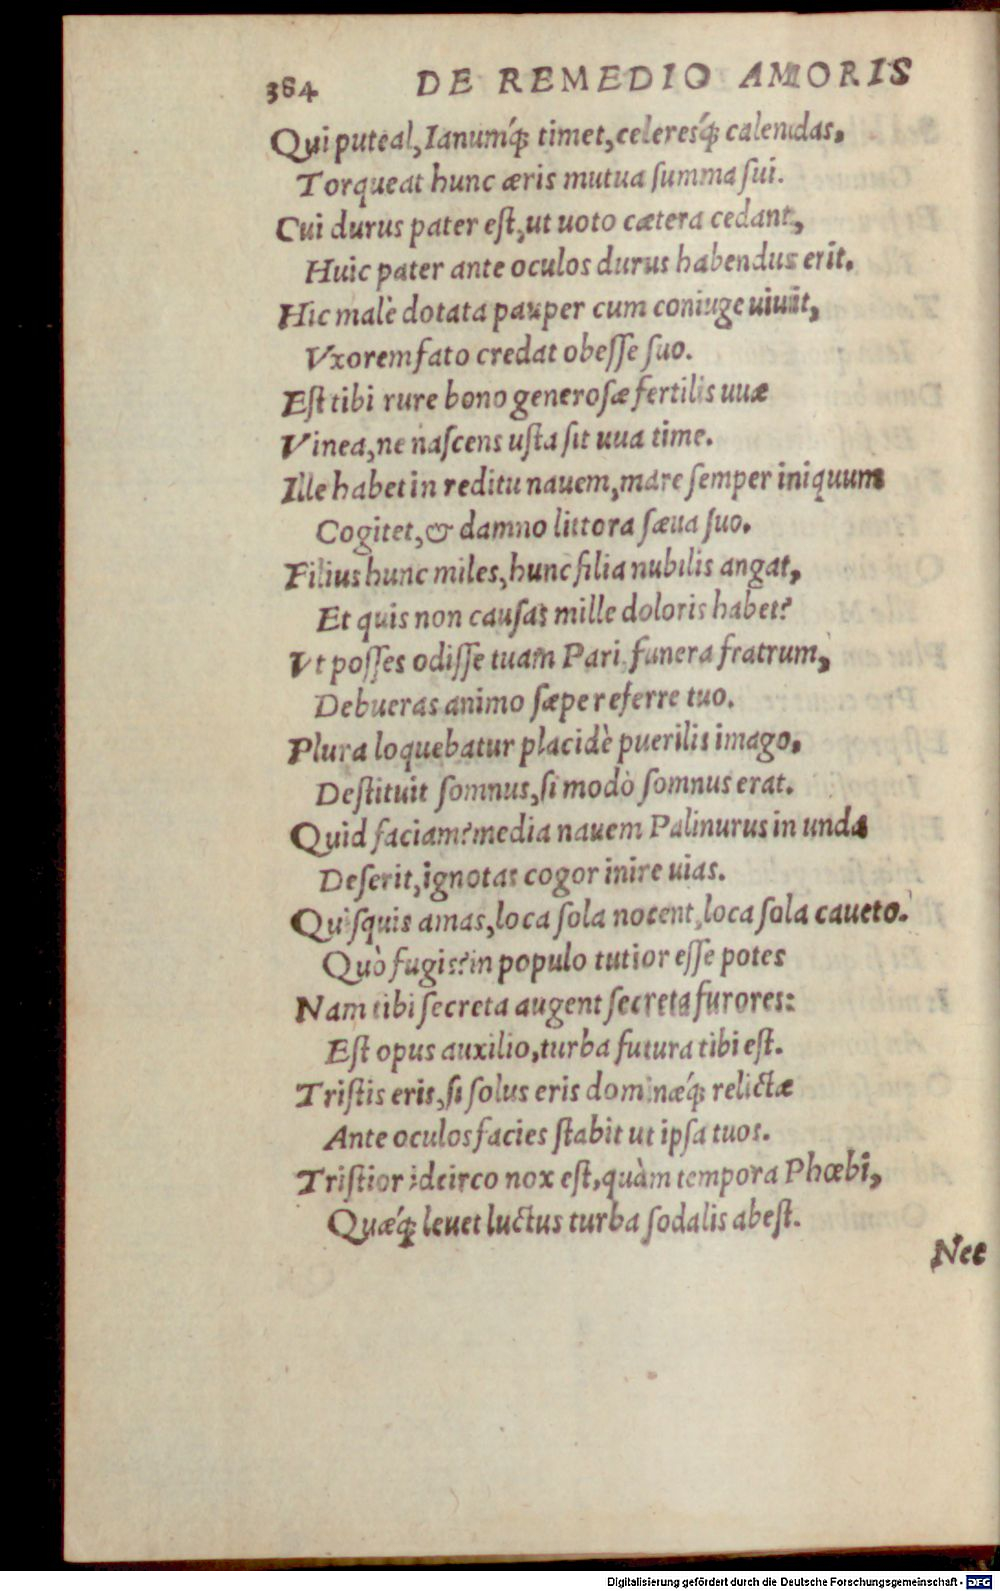 384 DE REMEDIO AMORIS
Qui puteal, Ianumq́ꝫ timet, celeresq́ꝫ calendas,
Torqueat hunc æris mutua ſumma ſui.
Cui durus pater eſt, ut uoto cætera cedant,
Huic pater ante oculos durus habendus erit.
Hic malè dotata pauper cum coniuge uiuit,
Vxorem fato credat obeſſe ſuo.
Eſt tibi rure bono generoſæ fertilis uuæ
Vinea, ne naſcens uſta ſit uua time.
Ille habet in reditu nauem, mare ſemper iniquum
Cogitet, & damno littora ſæua ſuo.
Filius hunc miles, hunc filia nubilis angat,
Et quis non cauſas mille doloris habet?
Vt poſſes odiſſe tuam Pari funera fratrum,
Debueras animo ſæpe referre tuo.
Plura loquebatur placidè puerilis imago,
Deſtituit ſomnus, ſi modò ſomnus erat.
Quid faciam? media nauem Palinurus in unda
Deſerit, ignotas cogor inire uias.
Quiſquis amas, loca ſola nocent, loca ſola caueto.
Quò fugis? in populo tutior eſſe potes
Nam tibi ſecreta augent ſecreta furores:
Eſt opus auxilio, turba futura tibi eſt.
Triſtis eris, ſi ſolus eris dominæq́ꝫ relictæ
Ante oculos facies ſtabit ut ipſa tuos.
Triſtior idcirco nox eſt, quàm tempora Phœbi,
Quæq́ꝫ leuet luctus turba ſodalis abeſt.
Nec
Digitalisierung gefördert durch die Deutsche Forschungsgemeinschaft - DFG